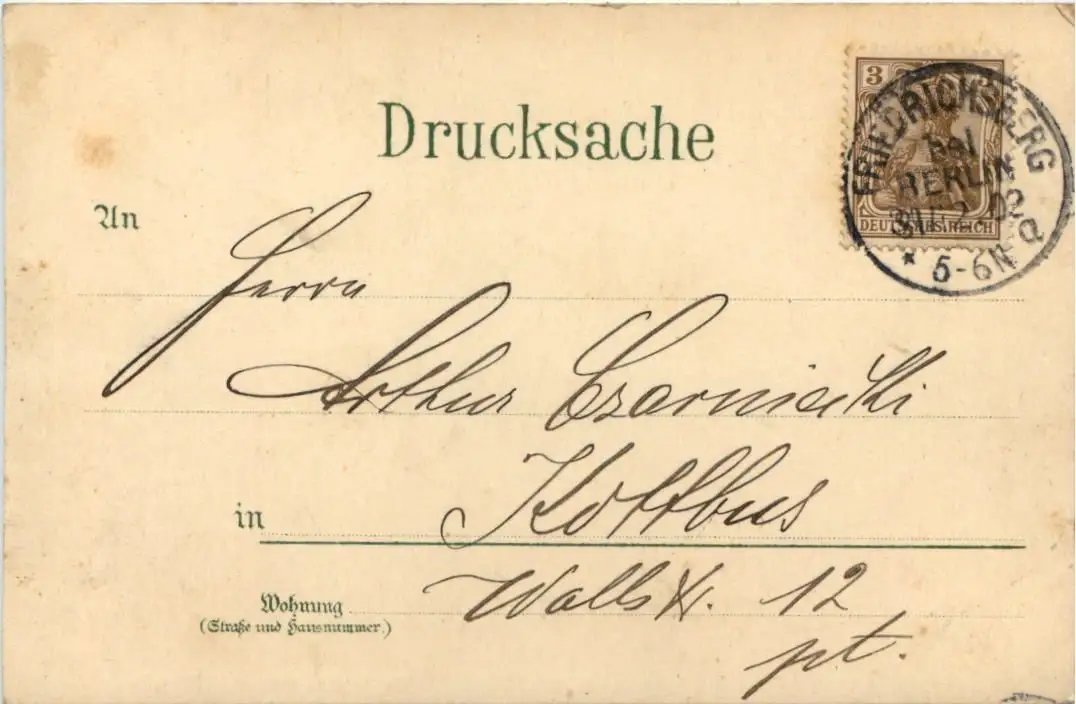 Drucksache
3
FRIEDRICHSBERG
bei
BERLIN
02
* 5-6N Q
DEUTSCHES REICH
An
Herrn
Arthur Czarniecki
in Kottbus
Wohnung Wallstr. 12
(Straße und Hausnummer.)
pt.